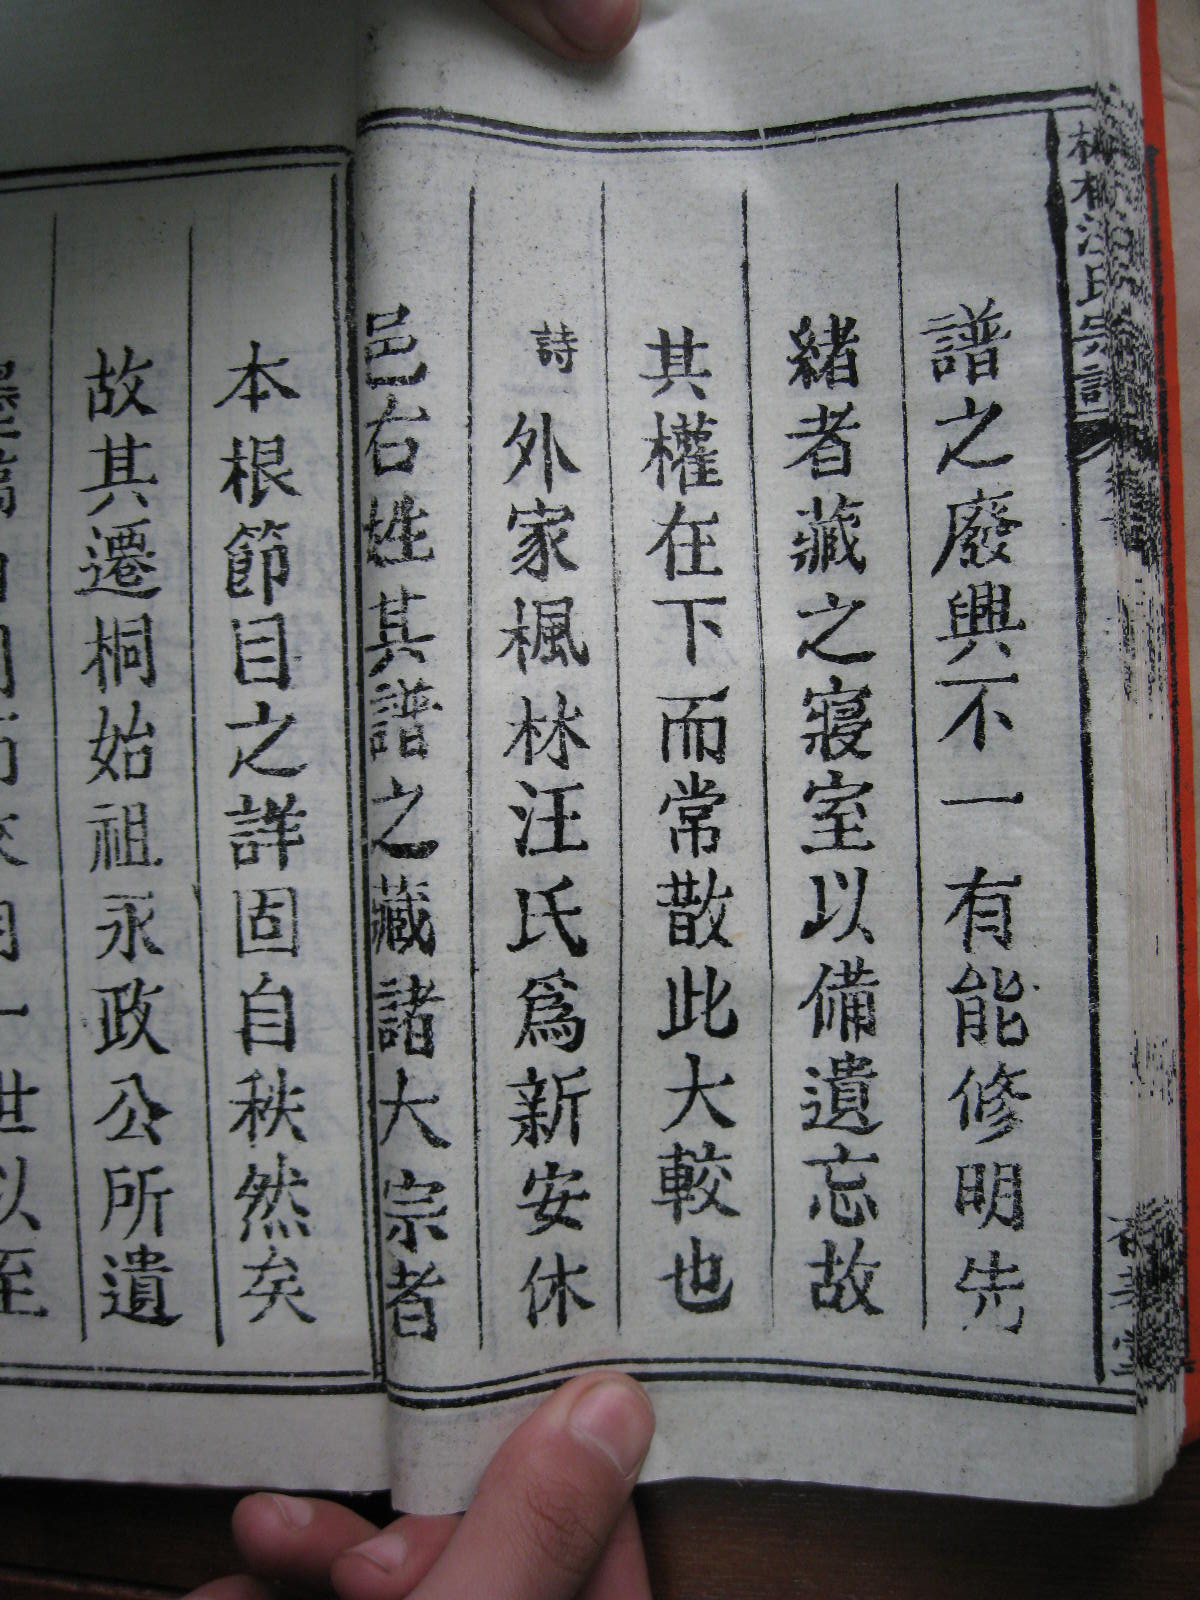 譜之廢興不一有能修明先
緒者藏之寢室以備遺忘故
其權在下而常散此大較也
詩外家楓林汪氏爲新安休
邑右姓其譜之藏諸大宗者
本根節目之詳固自秩然矣
故其遷桐始祖永政公所遺
世以至